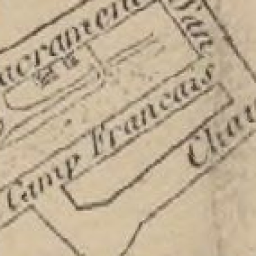 acrament
san
Camp Francais
Chau